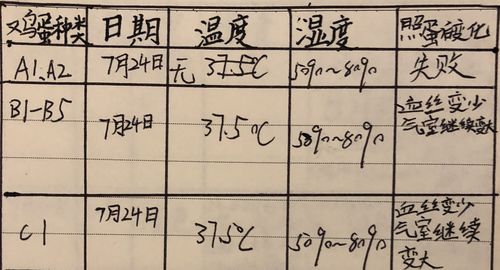 鸡蛋种类 日期 温度 湿度 照蛋变化
A1、A2 7月24日 无 37.5℃ 50%~80% 失败
B1-B5 7月24日 37.5℃ 50%~80% 血丝变少
气室继续变大
C1 7月24日 37.5℃ 50%~80% 血丝变少
气室继续
变大